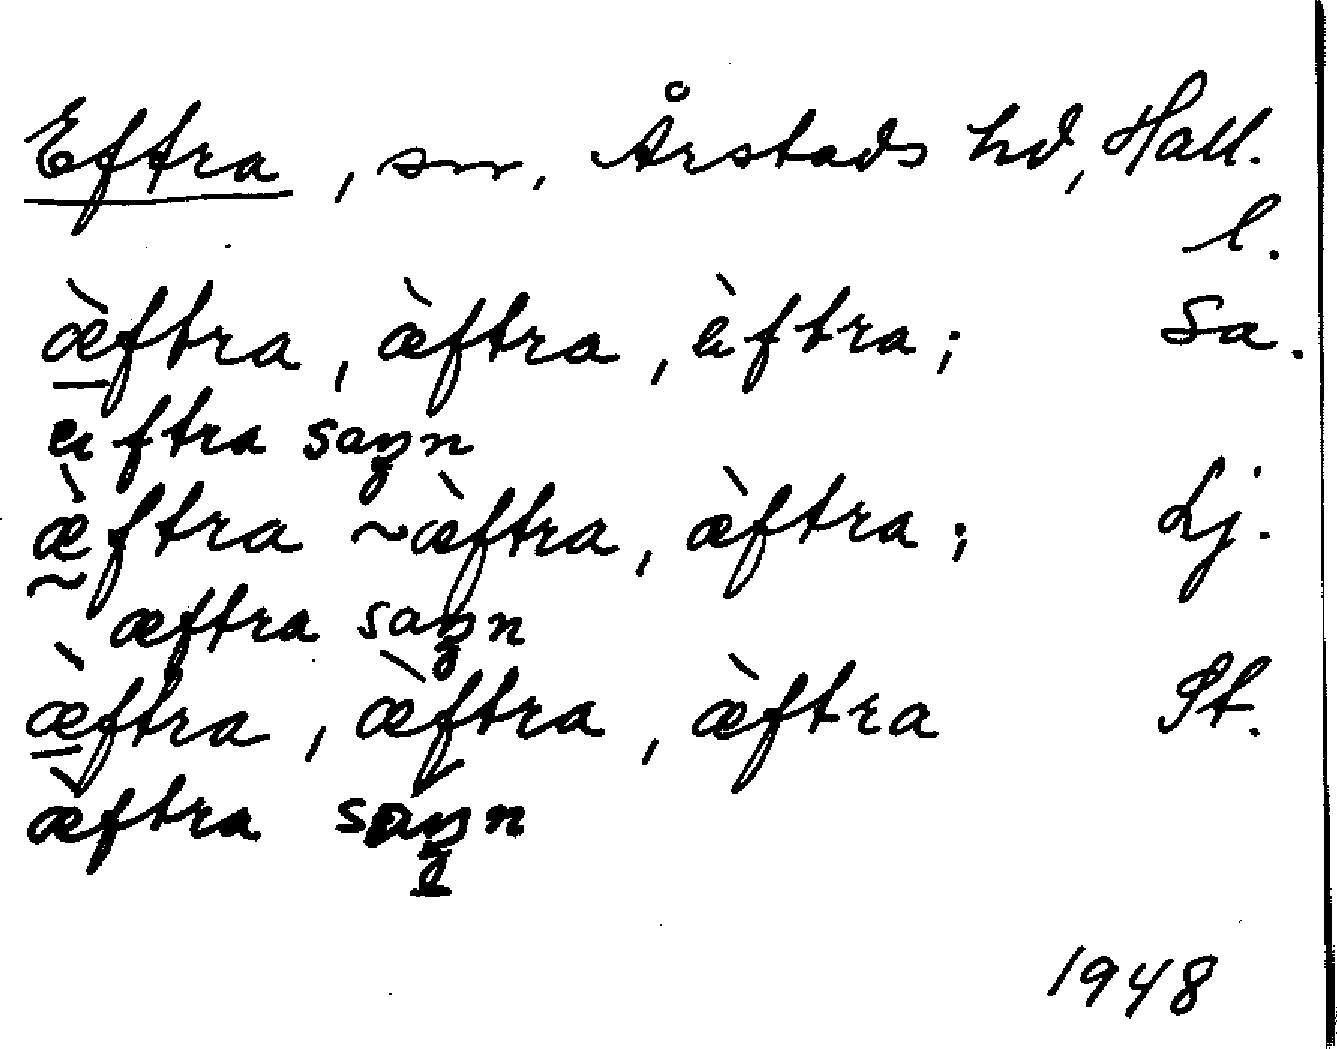 Eftra, sn, Årstads hd, Hall.
l.
æ̠̀ftra, æ̀ftra, æ̀ftra; Sa.
æftra sazn
æ̰̀ftra ~ æ̀ftra, æ̀ftra; Lj.
æftra sazn
æ̠̀ftra, æ̀ftra, æ̀ftra St.
æ̀ftra
1948